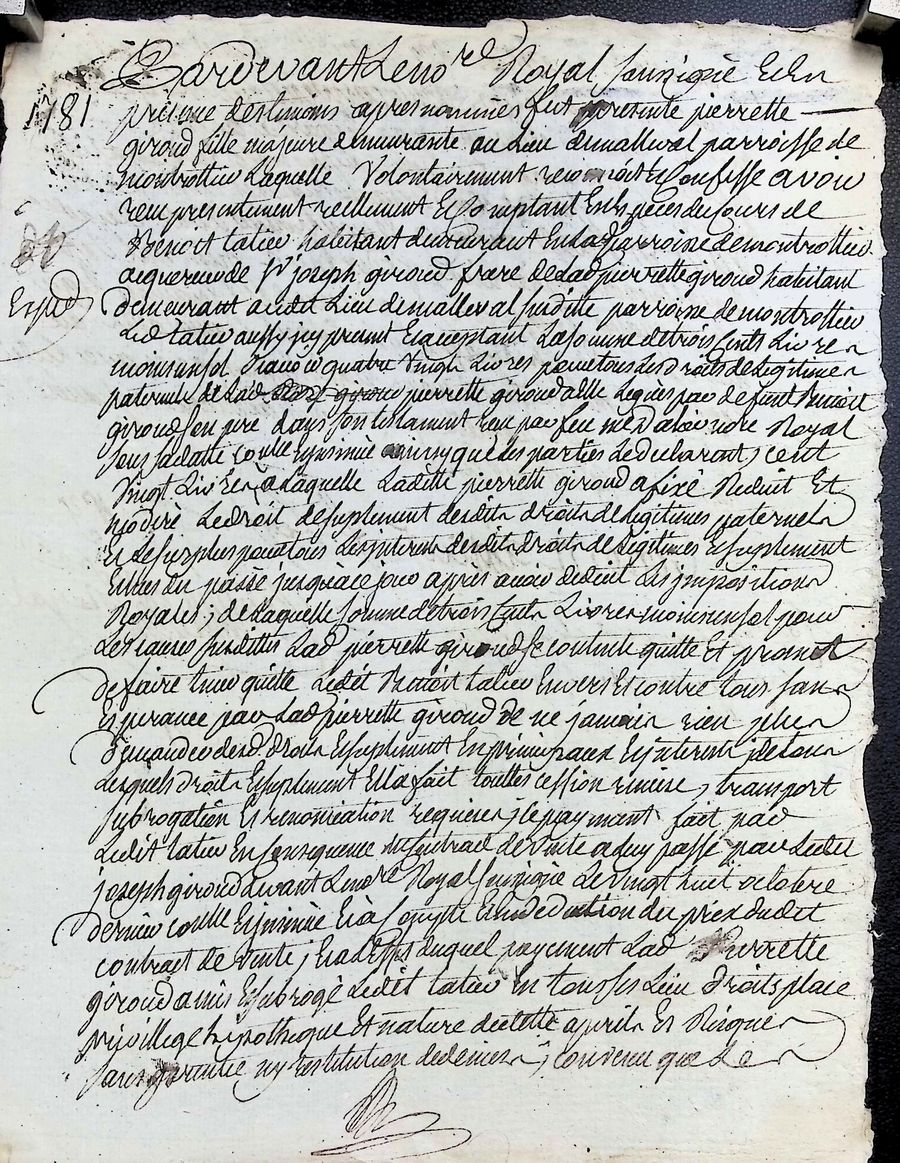 Pardevant Le no.re Royal soussigné Et En
1781
presence des temoins apres nommés fut presente pierrette
giroud fille majeure demeurante au Lieu de mallval parroisse de
montrottier Laquelle Volontairement reconnoit Et Confesse avoir
recu presentement reellement Et Comptant En Especes du Cours de
Benoit tatier habitant demeurant En Lad parroisse de montrottier
acquereur de Sr joseph giroud frere de Lad pierrette giroud habitant
Exped
demeurant audit Lieu de malleval susditte parroisse de montrottier
Led tatier aussy icy present Et acceptant La somme de trois Cents Livres
moins un sol Scavoir quatre Vingt Livres pour tous Les Droits de Legitimes
paternels de Lad giroud pierrette giroud a Elle Legués par defunt Benoit
giroud son pere dans son testament recu par feu me no.re Royal
sous sa datte controllé Et insinué ainsy que les parties Le declarent, cent
Vingt Livres a Laquelle Laditte pierrette giroud a fixé Reduit Et
moderé Le droit de suplement desdits droits de Legitimes paternels
Et Le surplus pour tous Les interets desdits droits de Legitimes Et suplement
Echus du passé jusqu'a ce jour après avoir deduit Les impositions
Royales; de Laquelle somme de trois Cents Livres moins un sol pour
Les causes susdittes Lad pierrette giroud se contente quitte Et promet
de faire tenir quitte Ledit Benoit tatier Envers Et contre tous sans
Esperance par Lad pierrette giroud de ne jamais rien plus
demander desd. droits Et suplement En principaux Et interets, de tous
Lesquels droits Et suplement Ella fait touttes cession remise, transport
subrogation Et renonciation requises; ce payment fait par
Ledit tatier En Consequence du Contrat de Vente a luy passé par Ledit
joseph giroud devant Le no.re Royal soussigné Le Vingt huit octobre
dernier controllé Et insinué Et à Compte Et En deduction du prix dudit
contract de Vente; Et a duquel payement Lad Pierrette
giroud a mis Et subrogé Ledit tatier En tous ses Lieu Droits place
privillege hypotheque Et nature de dette a perils Et Risques
sans garantie ny Restitution de deniers; convenu que Les